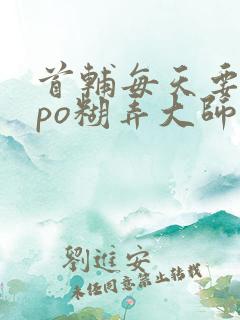 首輔每天要
po糊弄大師
劉進安
未任同意禁止转载